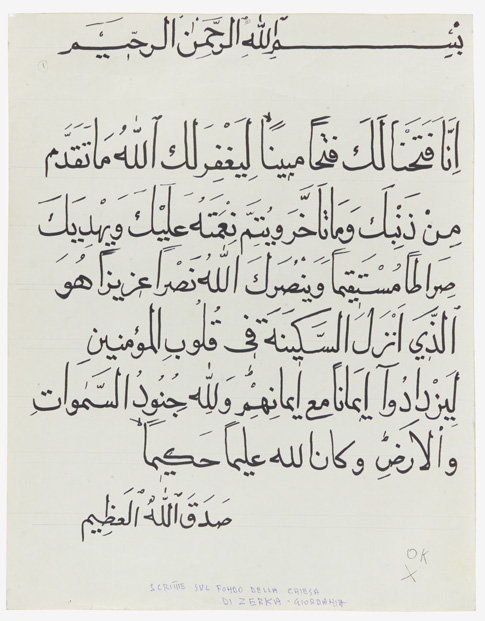 بِسْمِ اللهِ الرَّحْمٰنِ الرَّحِيْمِ
١
إِنَّا فَتَحْنَا لَكَ فَتْحًا مُبِينًا لِيَغْفِرَ لَكَ ٱللهُ مَا تَقَدَّمَ
مِنْ ذَنْبِكَ وَمَا تَأَخَّرَ وَيُتِمَّ نِعْمَتَهُ عَلَيْكَ وَيَهْدِيَكَ
صِرَاطًا مُسْتَقِيمًا وَيَنْصُرَكَ اللهُ نَصْرًا عَزِيزًا هُوَ
ٱلَّذِي أَنْزَلَ السَّكِينَةَ فِي قُلُوبِ المُؤْمِنِينَ
لِيَزْدَادُوآ إِيمَانًا مَعَ إِيمَانِهِمْ وَلِلهِ جُنُودُ السَّمٰوَاتِ
وَٱلأَرْضِ وكان الله عليمًا حَكِيمًا
صَدَقَ ٱللهُ ٱلْعَظِيم
OK
X
SCRITTE SUL FONDO DELLA CHIESA
DI ZERKA - GIORDANIA